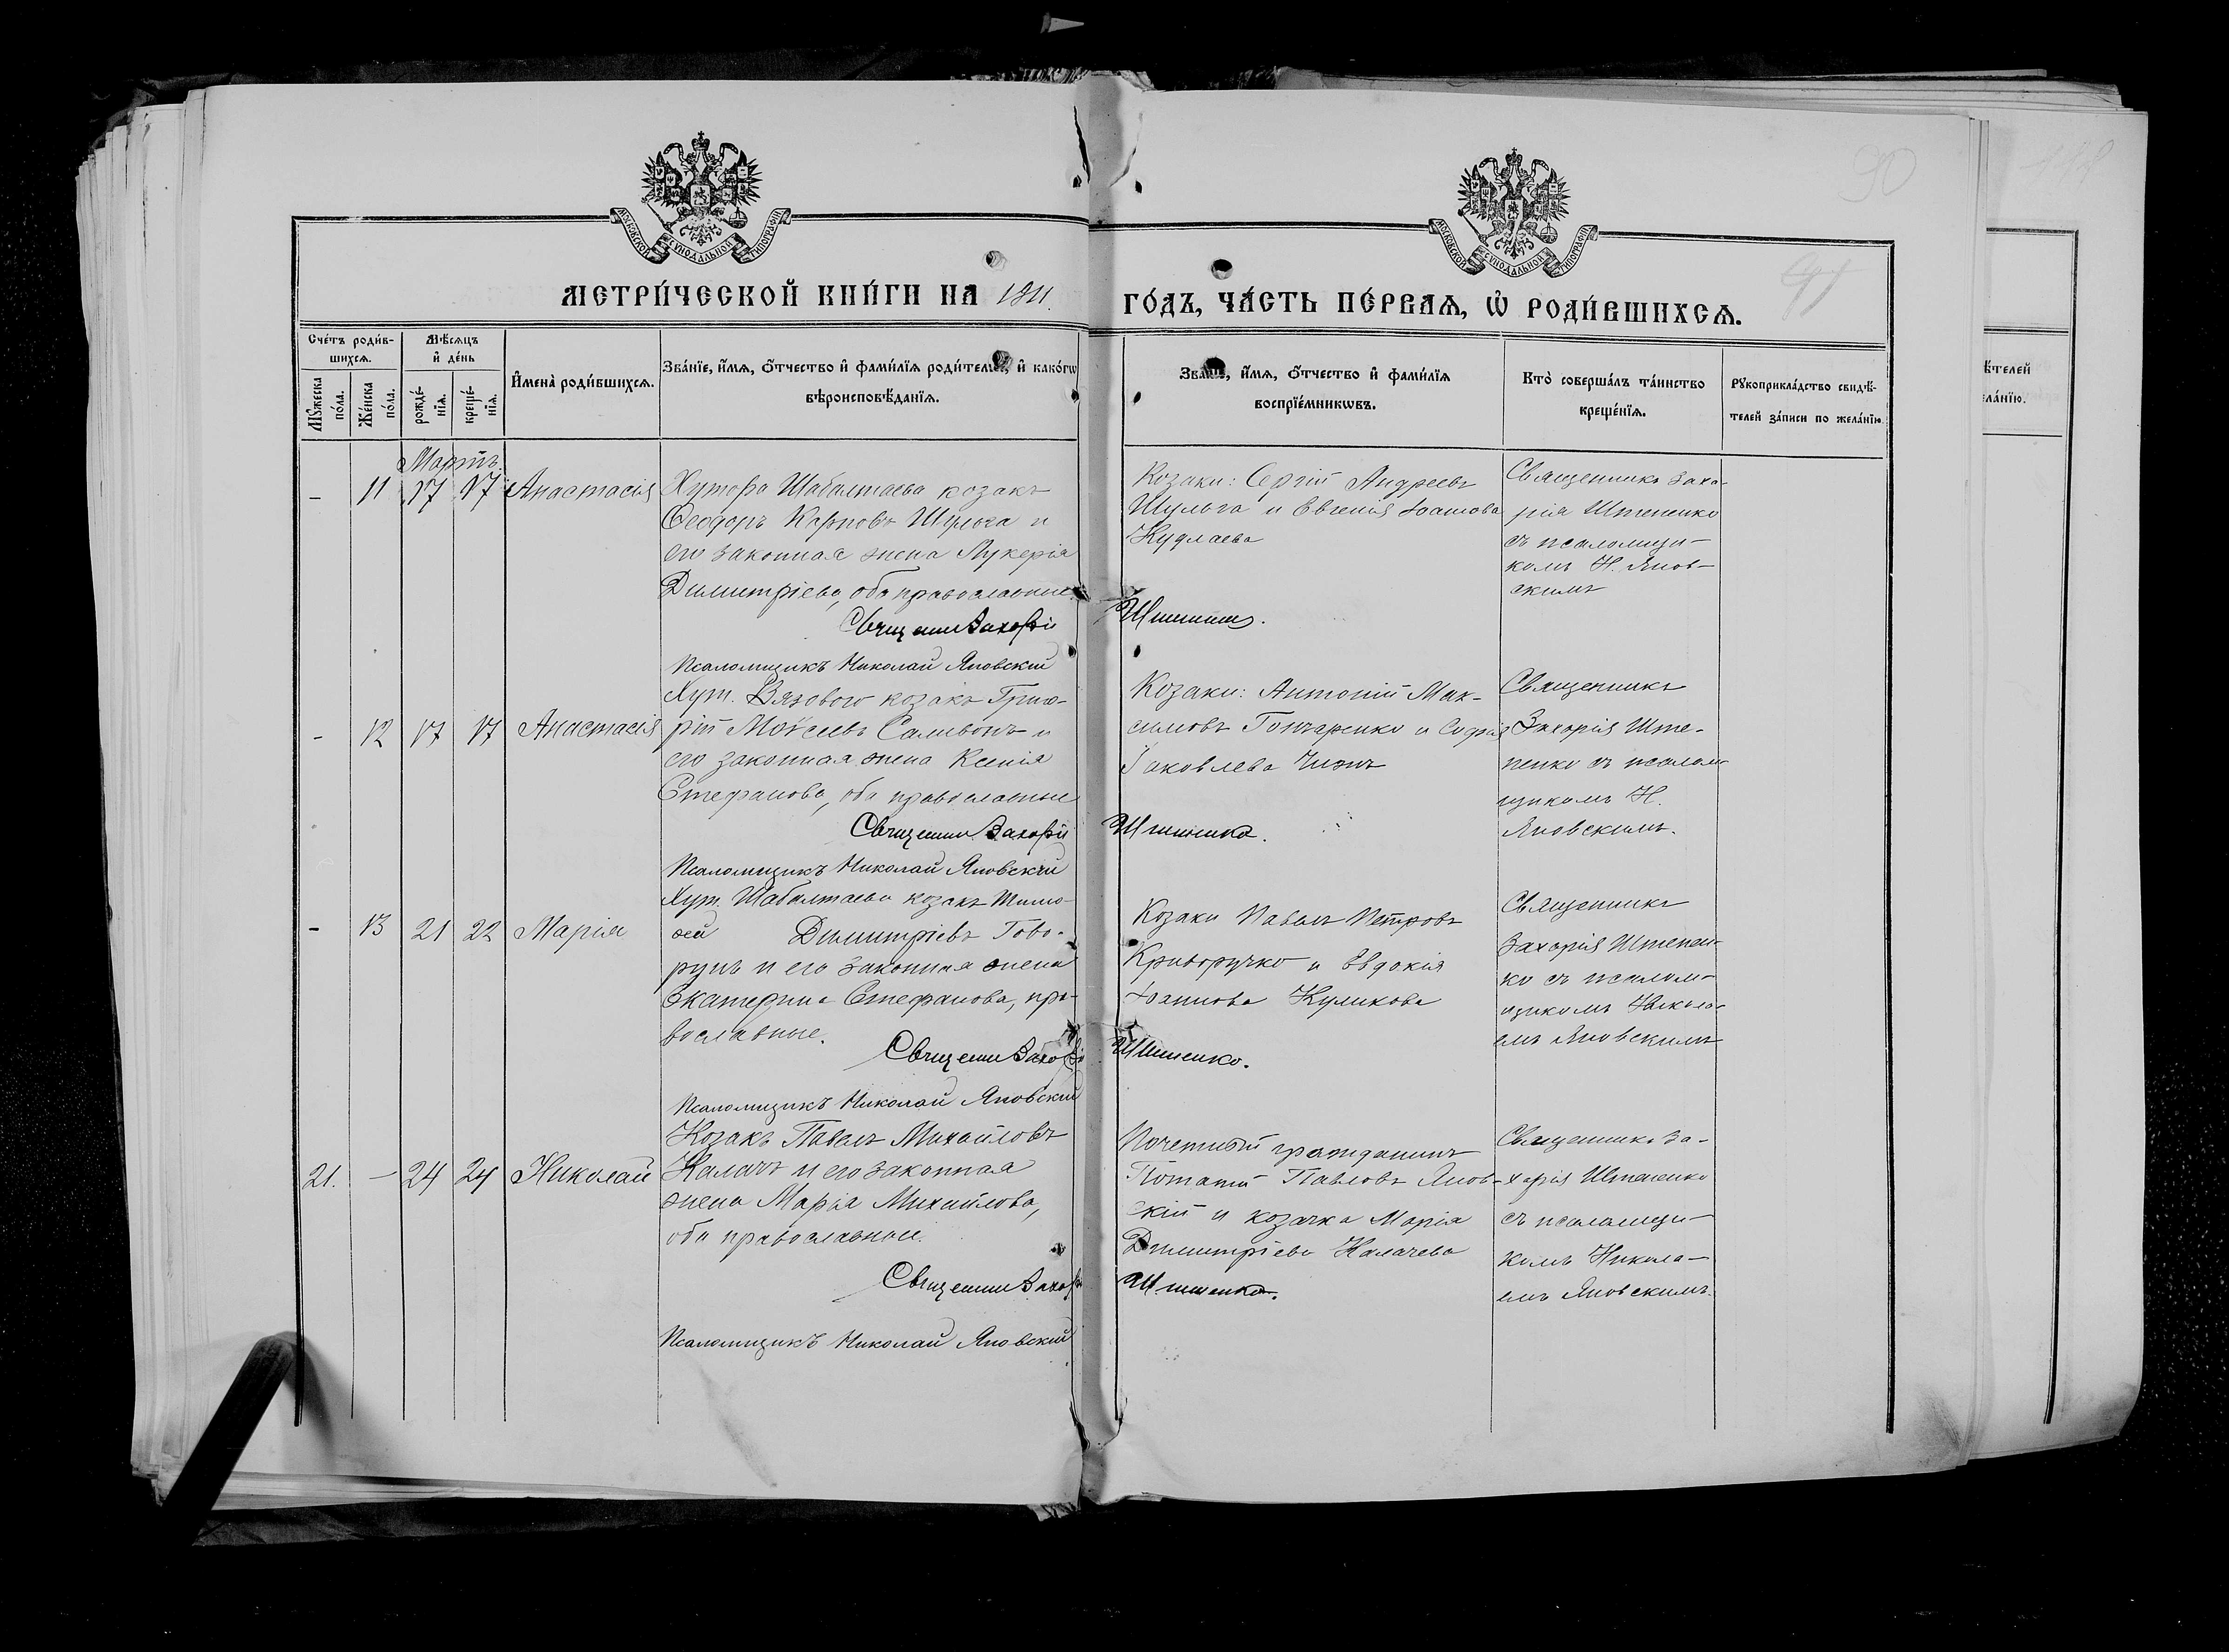 90
МОСКОВСКОЙ СѴНОДАЛЬНОЙ ТИПОГРАФІИ
МОСКОВСКОЙ СѴНОДАЛЬНОЙ ТИПОГРАФІИ
МЕТРИ́ЧЕСКОЙ КНИ́ГИ НА 1911
ГО́ДЪ, ЧА́СТЬ ПЕ́РВАЯ, Ѡ҆ РОДИ́ВШИХСЯ.
Сче́тъ роди́в-
шихся.
Мѣ́сяцъ
и҆ де́нь
Мꙋ́жеска
по́ла.
Же́нска
по́ла.
рожде́-
нїя.
креще́-
нїя.
И҆мена̀ роди́вшихся.
Зва́нїе, и҆́мя, ѻ҆́тчество и҆ фами́лїя роди́телей, и҆ како́гѡ
вѣроисповѣ́данїя.
Зва́нїе, и҆́мя, ѻ҆́тчество и҆ фами́лїя
воспрїе́мникѡвъ.
Кто̀ соверша́лъ та́инство
креще́нїя.
Рꙋкоприкла́дство свидѣ́-
телей за́писи по жела́нїю
Мартъ.
- 11 17 17 Анастасія
Хутора Шабалтаева козакъ
Ѳеодоръ Карповъ Шульга и
его законная жена Лукерія
Димитріева, оба православные.
Священ. Захарій
Псаломщикъ Николай Яновскій
Козаки: Сергій Андреевъ
Шульга и Евгенія Іоаннова
Кудлаева
Штепенко.
Священникъ Заха-
рія Штепенко
съ псаломщи-
комъ Н. Янов-
скимъ
- 12 17 17 Анастасія
Хут. Вязового козакъ Григо-
рій Моѵсеевъ Саливонъ и
его законная жена Ксенія
Стефанова, оба православные
Священ. Захарій
Псаломщикъ Николай Яновскій
Козаки: Антоній Мак-
симовъ Гончаренко и Софія
Іаковлева Чижъ
Штепенко.
Священникъ
Захарія Ште-
пенко съ псалом-
щикомъ Н.
Яновскимъ.
- 13 21 22 Марія
Хут. Шабалтаева козакъ Тимо-
ѳей Димитріевъ Гово-
рунъ и его законная жена
Екатерина Стефанова, пра-
вославные.
Священ. Захарій
Псаломщикъ Николай Яновскій
Козаки Павелъ Петровъ
Криворучко и Евдокія
Іоаннова Куликова
Штепенко.
Священникъ
Захарія Штепен-
ко съ псалом-
щикомъ Никола-
емъ Яновскимъ
21. - 24 24 Николай
Козакъ Павелъ Михайловъ
Калачъ и его законная
жена Марія Михайлова,
оба православные.
Священ. Захарій
Псаломщикъ Николай Яновскій
Почетный гражданинъ
Потапій Павловъ Янов-
скій и козачка Марія
Димитріева Калачева
Штепенко.
Священникъ За-
харія Штепенко
съ псаломщи-
комъ Никола-
емъ Яновскимъ.
ѣ́телей
ела́нїю.